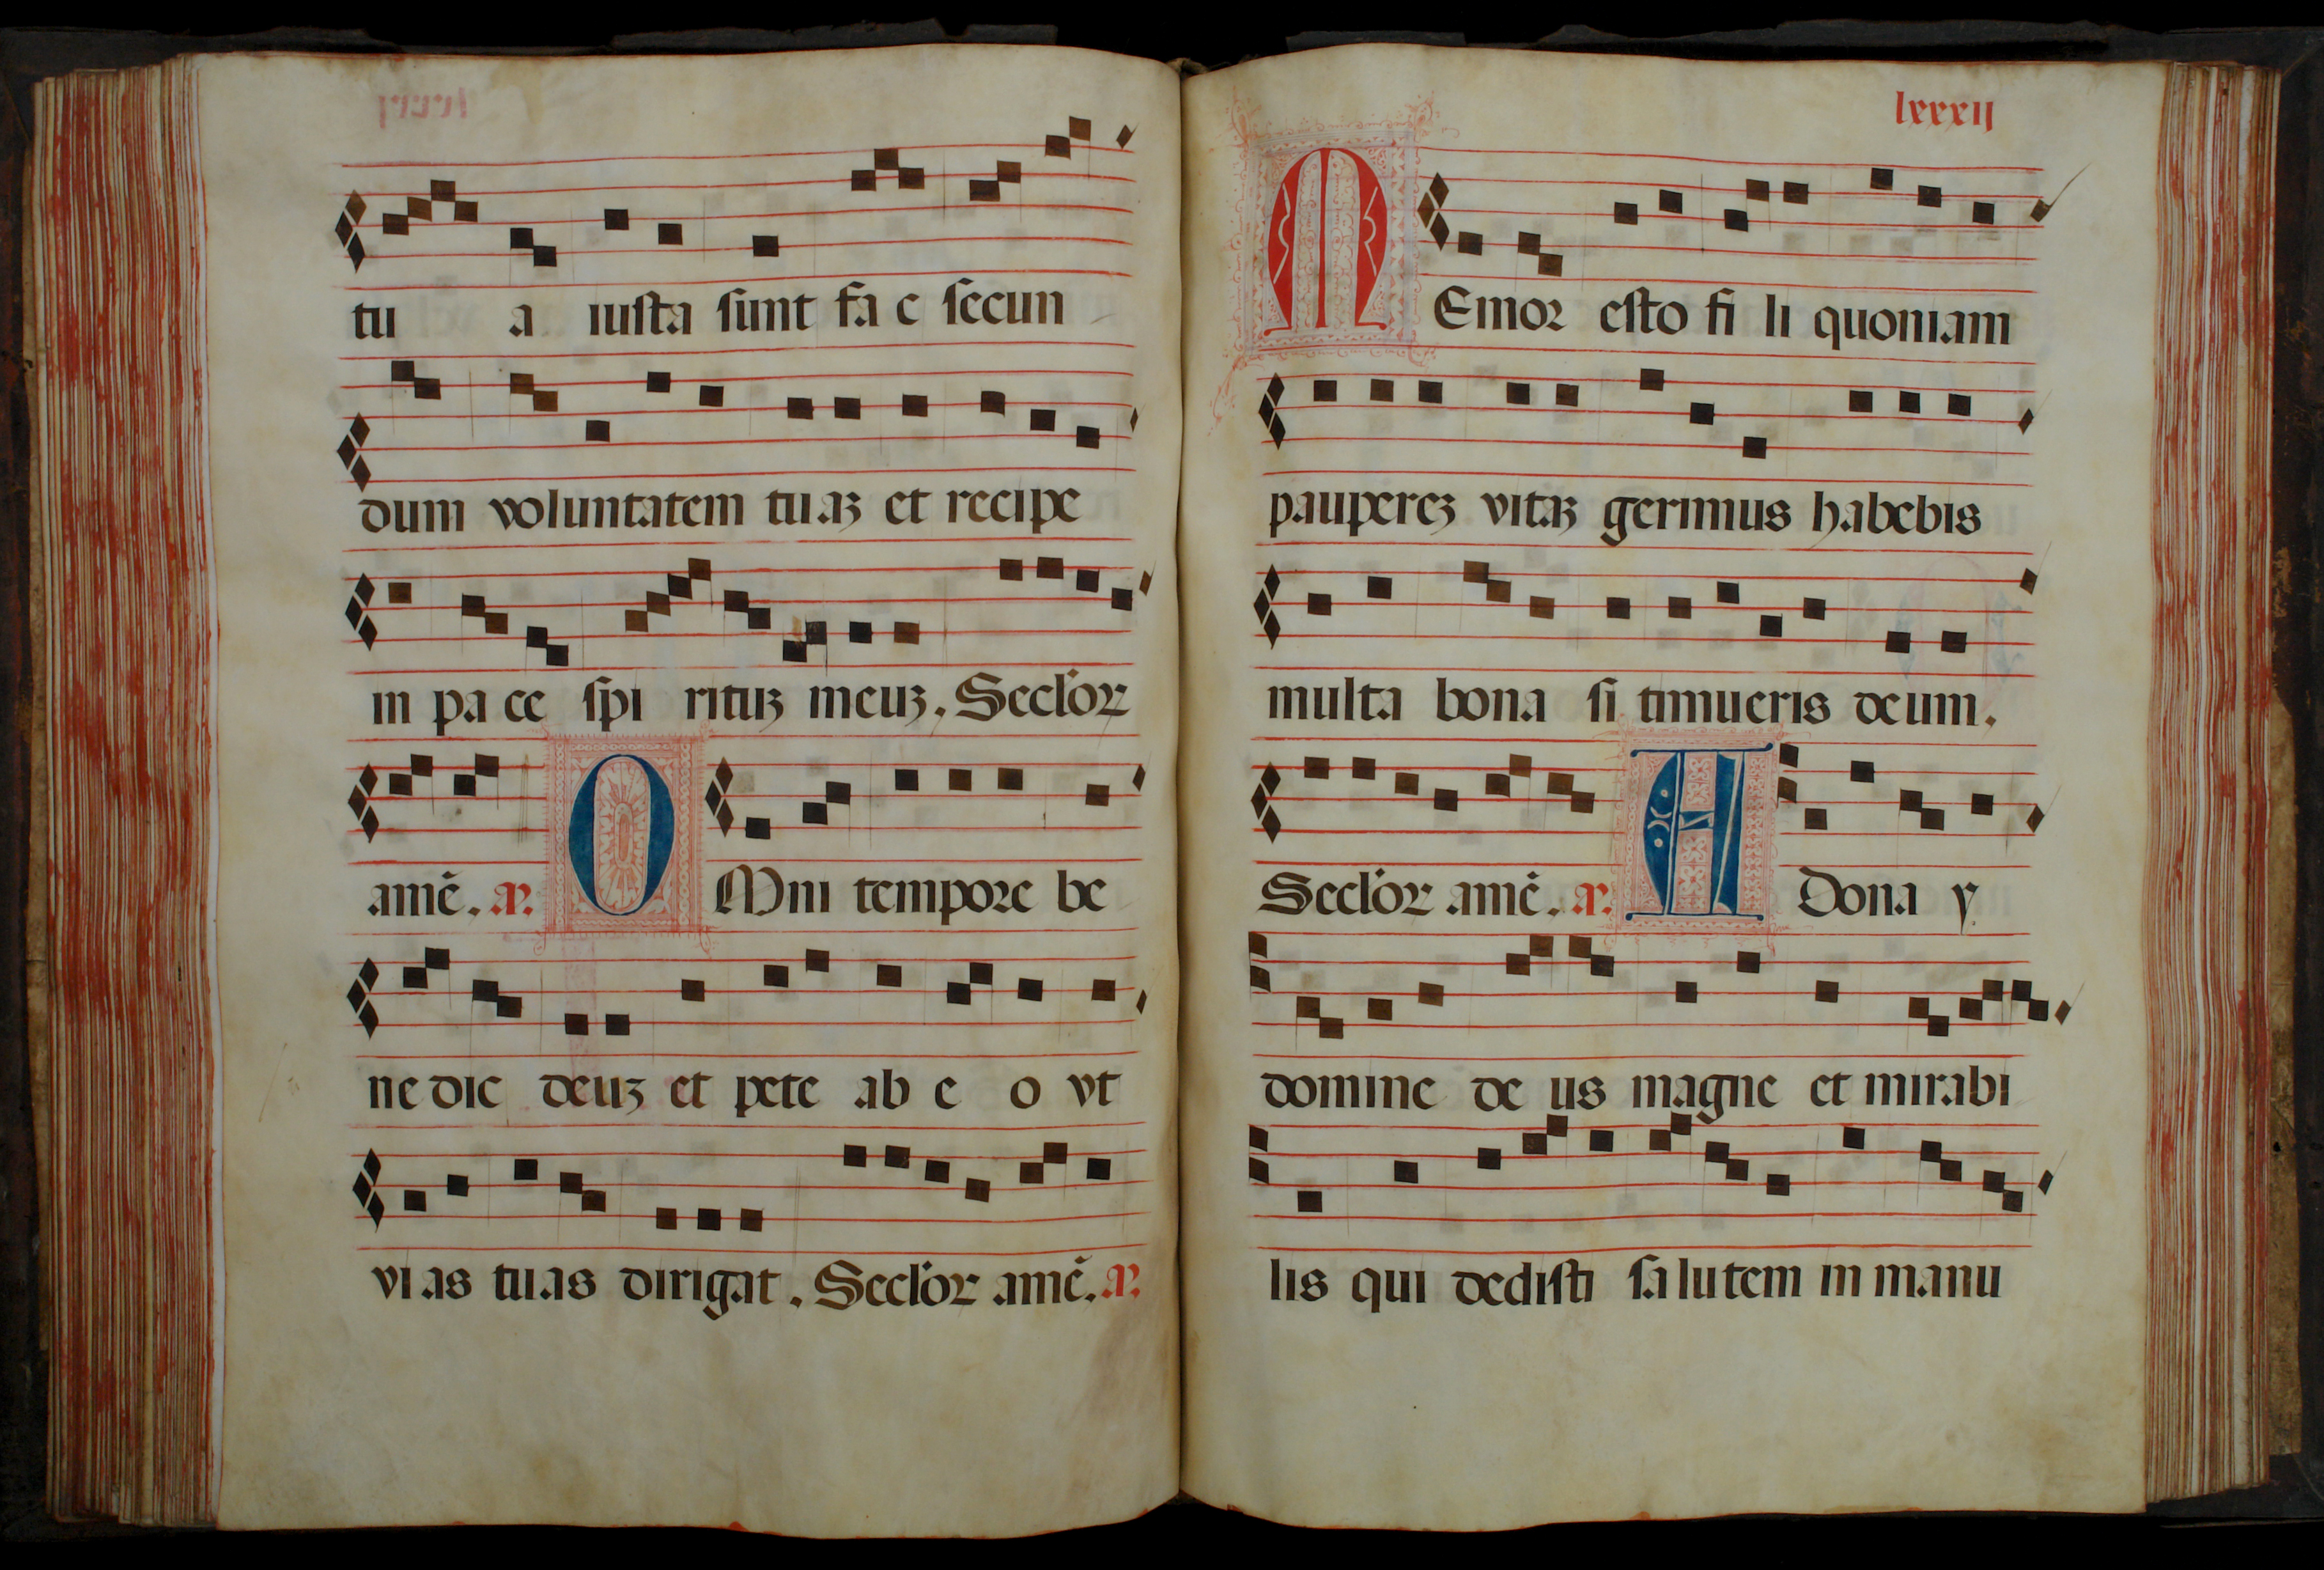 tu a iusta sunt fa c secun
dum voluntatem tuaʒ et recipe
in pa ce spi rituʒ meuʒ. Secl'oꝝ
amē. aꝰ. O Mni tempore be
ne dic deuʒ et pete ab e o vt
vias tuas dirigat. Secl'oꝝ amē. aꝰ.
lxxxii
M Emor esto fi li quoniam
paupereʒ vitaʒ gerimus habebis
multa bona si timueris deum.
Secl'oꝝ amē. aꝰ. A Dona y
domine de us magne et mirabi
lis qui dedisti sa lutem in manu